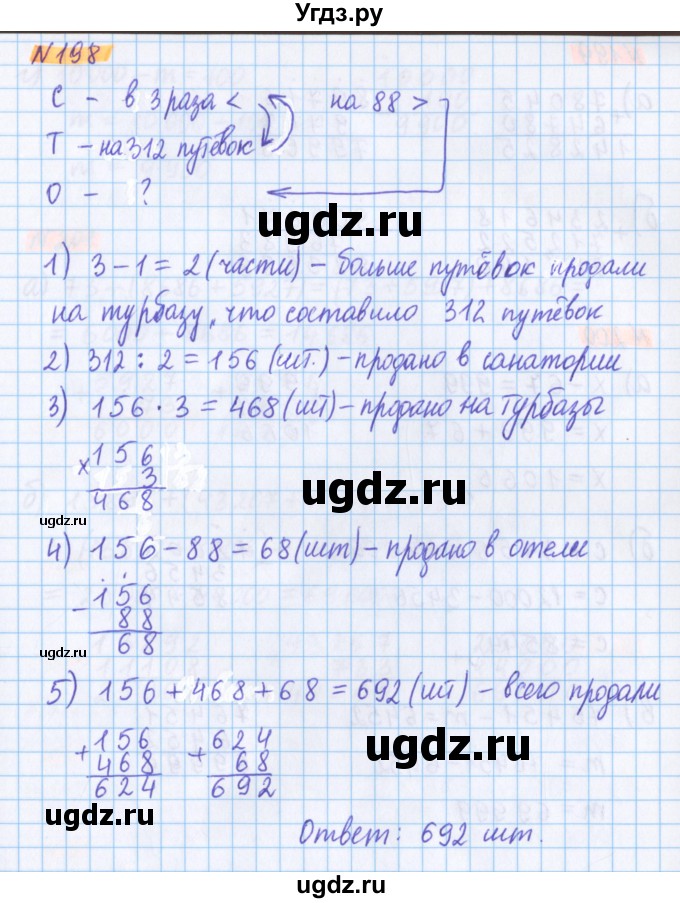 Угдз.ру
N198
С – в 3 раза < на 88 >
Т – на 312 путёвок
О – ?
ugdz.ru
1) 3 – 1 = 2 (части) – больше путёвок продали
на турбазу, что составило 312 путёвок
2) 312 : 2 = 156 (шт.) – продано в санатории
3) 156 · 3 = 468 (шт) – продано на турбазы
× 156
3
468
ugdz.ru
ugdz.ru
4) 156 – 88 = 68 (шт) – продано в отели
– 156
88
68
ugdz.ru
ugdz.ru
5) 156 + 468 + 68 = 692 (шт) – всего продали
+ 156 + 624
468 68
624 692
ugdz.ru
ugdz.ru
Ответ: 692 шт.
ugdz.ru